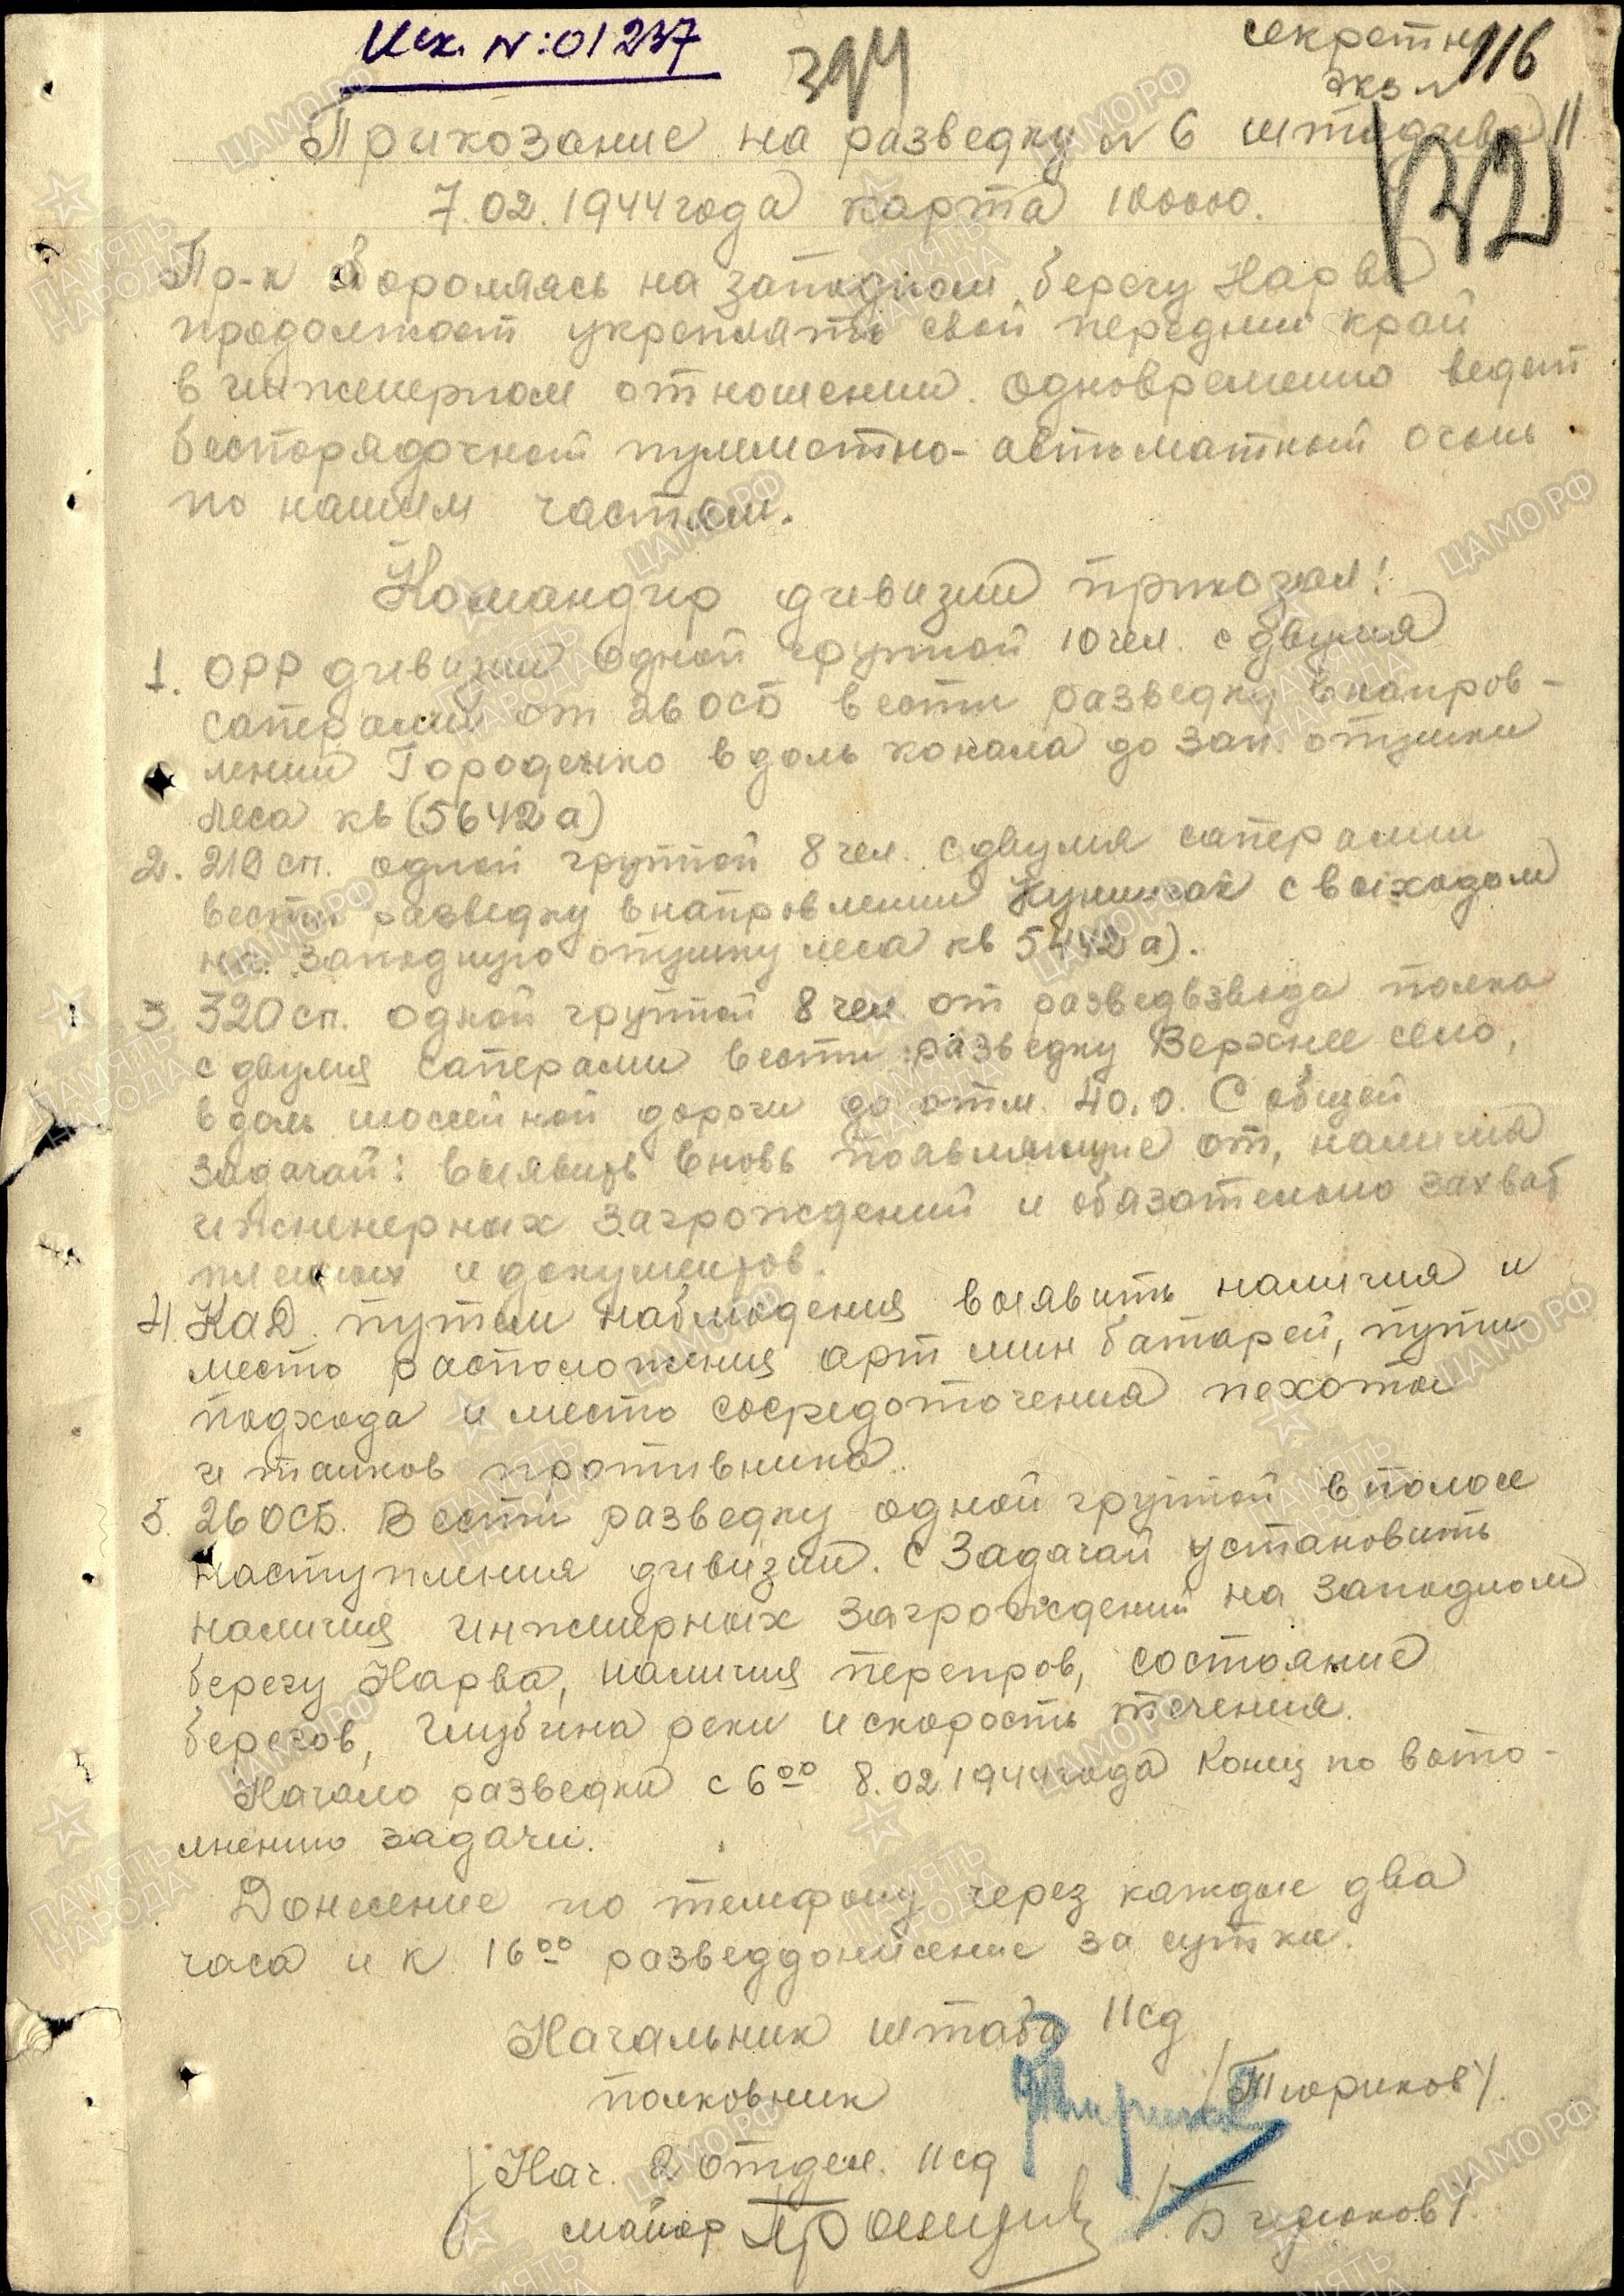 Исх. N:01237
394
секретно
116
экз N
122
Приказание на разведку N 6 штадив 11
7.02.1944 года карта 100000.
Пр-к обороняясь на западном берегу Нарва
продолжает укреплять свой передний край
в инженерном отношении. Одновременно ведет
беспорядочный пулеметно-автоматный огонь
по нашим частям.
Командир дивизии приказал!
1. ОРР дивизии одной группой 10 чел. с двумя
саперами от 26 ОСБ вести разведку в направ-
лении Городенко вдоль канала до зап. опушки
леса кв (5642 а)
2. 219 сп. одной группой 8 чел. с двумя саперами
вести разведку в направлении с выходом
на западную опушку леса кв 5442 а).
3. 320 сп. одной группой 8 чел. от разведвзвода полка
с двумя саперами вести разведку Верхнее село,
вдоль шоссейной дороги до отм. 40,0. С общей
задачай: выявить вновь появляющие от, наличия
инженерных заграждений и обязательно захват
пленных и документов.
4. КАД. путем наблюдения выявить наличия и
место расположения арт мин батарей, пути
подхода и место сосредоточения пехоты
и танков противника.
5. 26 ОСБ. Вести разведку одной группой в полосе
наступления дивизии. С задачай установить
наличия инженерных заграждений на западном
берегу Нарва, наличия переправ, состояние
берегов, глубина реки и скорость течения.
Начало разведки с 6 00 8.02.1944 года Конец по выпо-
лнению задачи.
Донесение по телефону через каждые два
часа и к 16 00 разведдонесение за сутки.
Начальник штаба 11сд
полковник /Тюриков/.
Нач. 2 отдел. 11сд
майор /Бирюков/.
ЦАМО РФ
ПАМЯТЬ НАРОДА